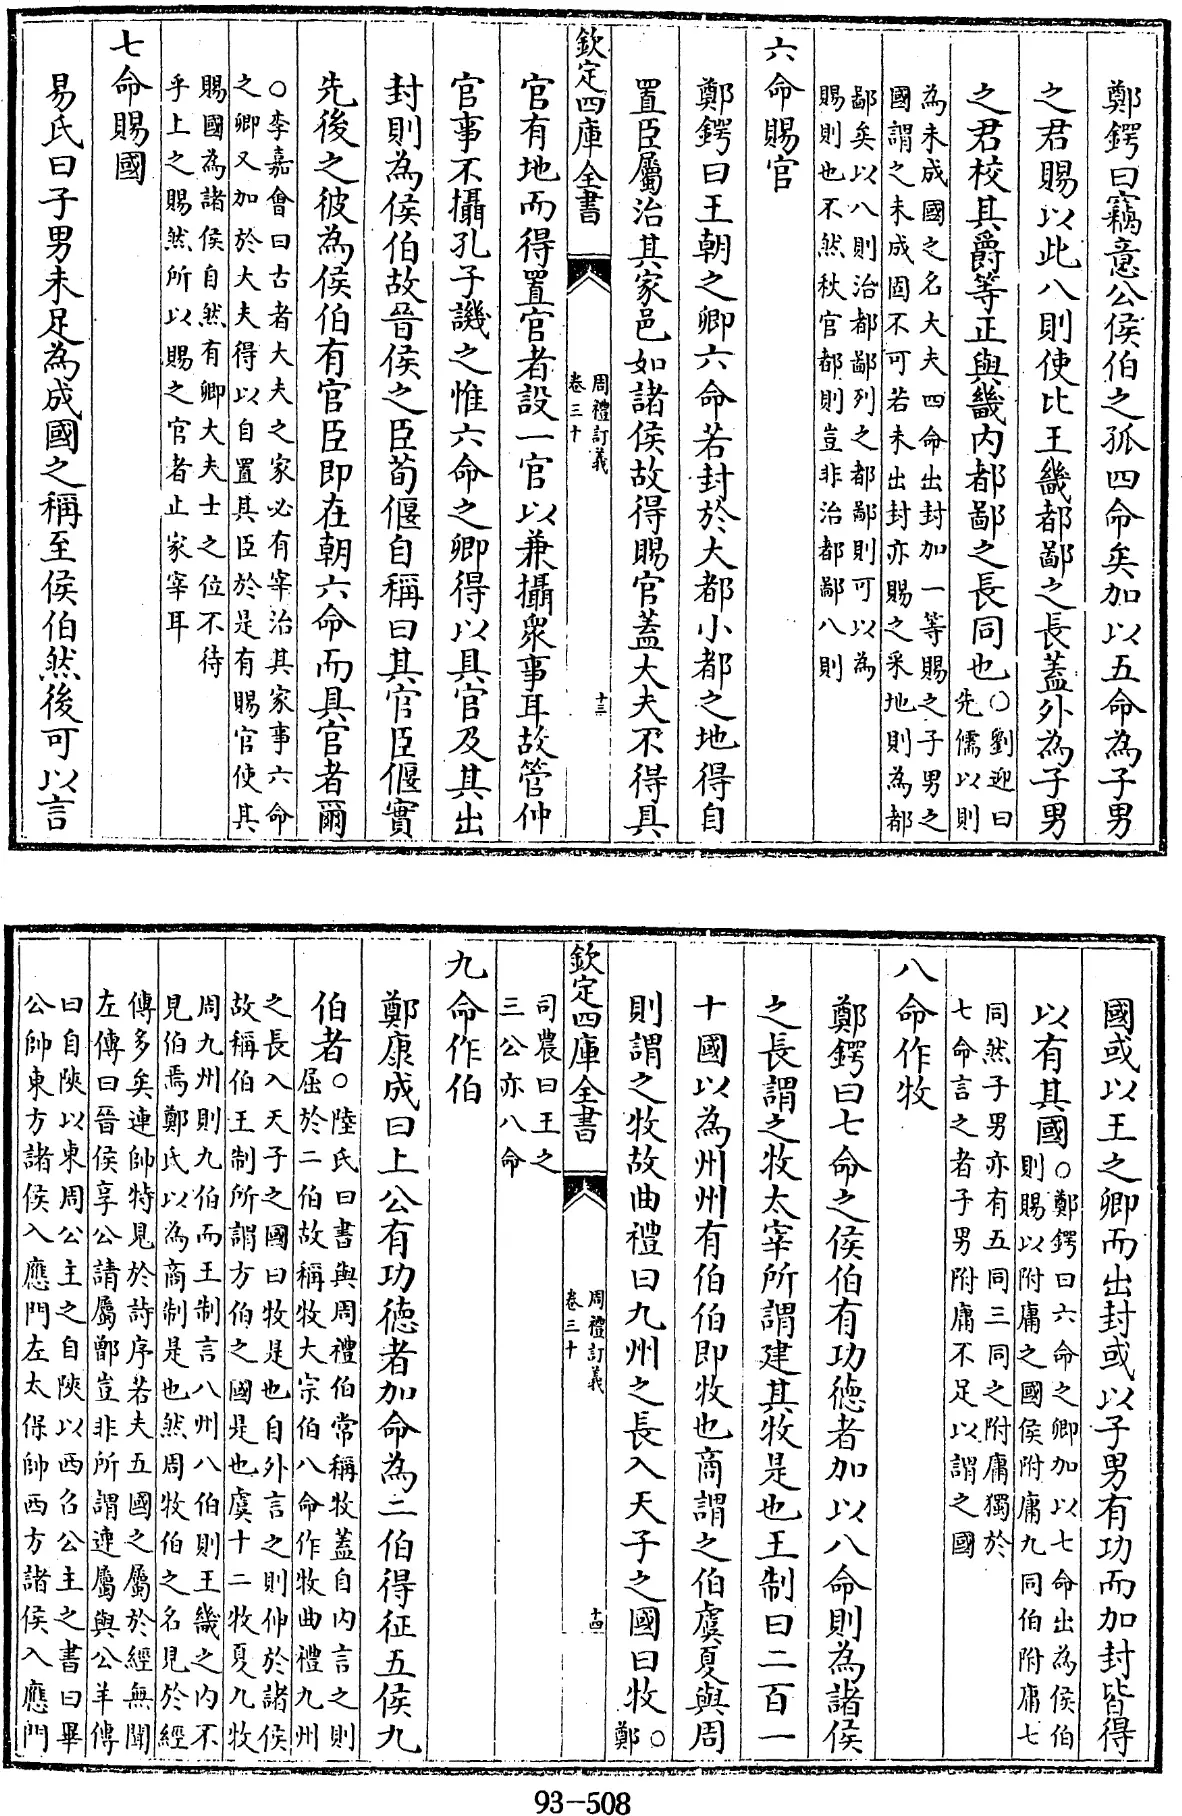 鄭鍔曰竊意公侯伯之孤四命矣加以五命為子男
之君賜以此八則使比王畿都鄙之長蓋外為子男
之君校其爵等正與畿內都鄙之長同也○劉迎曰
先儒以則
為未成國之名大夫四命出封加一等賜之子男之
國謂之未成國不可若未出封亦賜之采地則為都
鄙矣以八則治都鄙列之都鄙則可以為
賜則也不然秋官都則豈非治都鄙八則
六命賜官
鄭鍔曰王朝之卿六命若封於大都小都之地得自
置臣屬治其家邑如諸侯故得賜官蓋大夫不得具
欽定四庫全書
周禮訂義
卷三十
十三
官有地而得置官者設一官以兼攝衆事耳故管仲
官事不攝孔子譏之惟六命之卿得以具官及其出
封則為侯伯故晉侯之臣荀偃自稱曰其官臣偃實
先後之彼為侯伯有官臣即在朝六命而具官者爾
○李嘉會曰古者大夫之家必有宰治其家事六命
之卿又加於大夫得以自置其臣於是有賜官使其
賜國為諸侯自然有卿大夫士之位不待
乎上之賜然所以賜之官者止家宰耳
七命賜國
易氏曰子男未足為成國之稱至侯伯然後可以言
國或以王之卿而出封或以子男有功而加封皆得
以有其國○鄭鍔曰六命之卿加以七命出為侯伯
則賜以附庸之國侯附庸九同伯附庸七
同然子男亦有五同三同之附庸獨於
七命言之者子男附庸不足以謂之國
八命作牧
鄭鍔曰七命之侯伯有功德者加以八命則為諸侯
之長謂之牧太宰所謂建其牧是也王制曰二百一
十國以為州州有伯伯即牧也商謂之伯虞夏與周
則謂之牧故曲禮曰九州之長入天子之國曰牧○
鄭
欽定四庫全書
周禮訂義
卷三十
十四
司農曰王之
三公亦八命
九命作伯
鄭康成曰上公有功德者加命為二伯得征五侯九
伯者○陸氏曰書與周禮伯常稱牧蓋自內言之則
屈於二伯故稱牧大宗伯八命作牧曲禮九州
之長入天子之國曰牧是也自外言之則伸於諸侯
故稱伯王制所謂方伯之國是也虞十二牧夏九牧
周九州則九伯而王制言八州八伯則王畿之內不
見伯焉鄭氏以為商制是也然周牧伯之名見於經
傳多矣連帥特見於詩序若夫五國之屬於經無聞
左傳曰晉侯享公請屬鄫豈非所謂連屬與公羊傳
曰自陝以東周公主之自陝以西召公主之書曰畢
公帥東方諸侯入應門左太保帥西方諸侯入應門
93-508